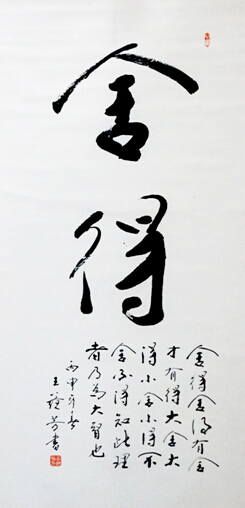 舍
得
舍得舍得有舍
才有得大舍大
得小舍小得不
舍不得知此理
者乃為大智也
丙申年春
王 芳書